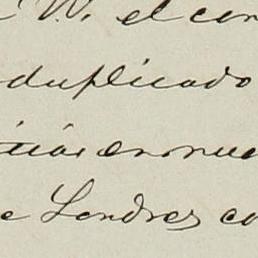 V. el con
duplicado
cias en nue
e Londres co